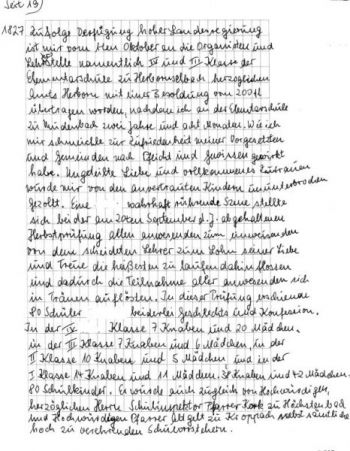 Seit 19)
1827 Zufolge Verfügung hoher Landesregierung
ist mir vom 1ten Oktober an die Organisten und
Lehrstelle namentlich IV und III Klasse der
Elementarschule zu Herbornselbach herzoglichen
Amts Herborn mit einer Besoldung von 200 fl
übertragen worden, nachdem ich an der Elementarschule
zu Mündenbach zwei Jahre und acht Monate. Wie ich
mir schmeichle zur Zufriedenheit meiner Vorgesetzten
und Gemeinden nach Pflicht und Gewissen gewirkt
habe. Ungeteilte Liebe und vollkommenes Zutrauen
wurde mir von den anvertrauten Kindern ununterbrochen
gezollt. Eine wahrhaft rührende Szene stellte
sich bei der am 20ten September d. J. abgehaltenen
Herbstprüfung allen anwesenden zum
von dem scheidenden Lehrer zum Lohn seiner Liebe
und Treue die häufigsten zu laufen dahin flossen
und dadurch die Teilnahme aller anwesenden sich
in Tränen auflösten. In dieser Prüfung erschienen
80 Schüler beiderlei Geschlechts und Konfession.
In der IV Klasse 7 Knaben und 20 Mädchen.
in der III Klasse 7 Knaben und 6 Mädchen, in der
II Klasse 10 Knaben und 5 Mädchen und in der
I Klasse 14 Knaben und 11 Mädchen. 38 Knaben und 42 Mädchen.
80 Schulkinder. Es wurde auch zugleich von Hochwürdigen,
herzoglichen Herrn Schulinspektor Pfarrer zu Höchstenbach
und Hochwürdigen Pfarrer Altgelt zu Kroppach nebst sämtliche
hoch zu verehrenden Schulvorstehern.